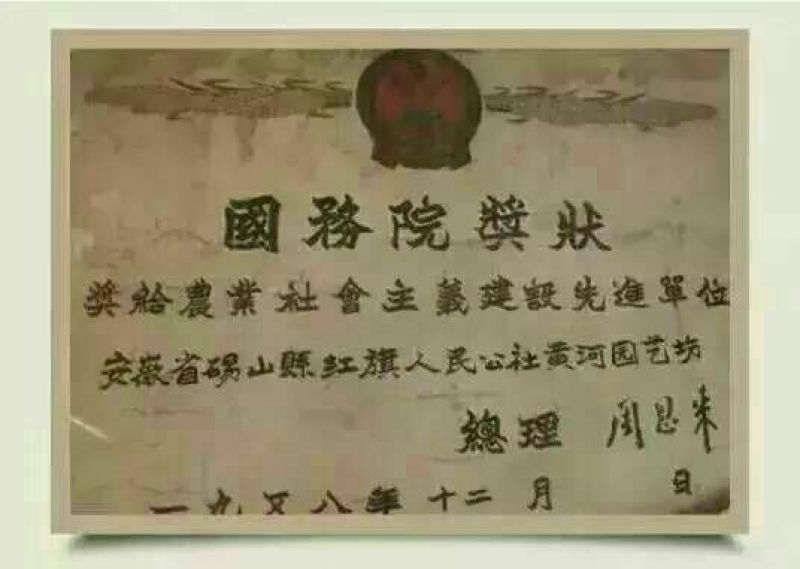 國務院奬狀
奬給農業社會主義建設先進單位
安徽省碭山縣红旗人民公社黄河园艺场
總理 周恩来
一九五八年十二月 日